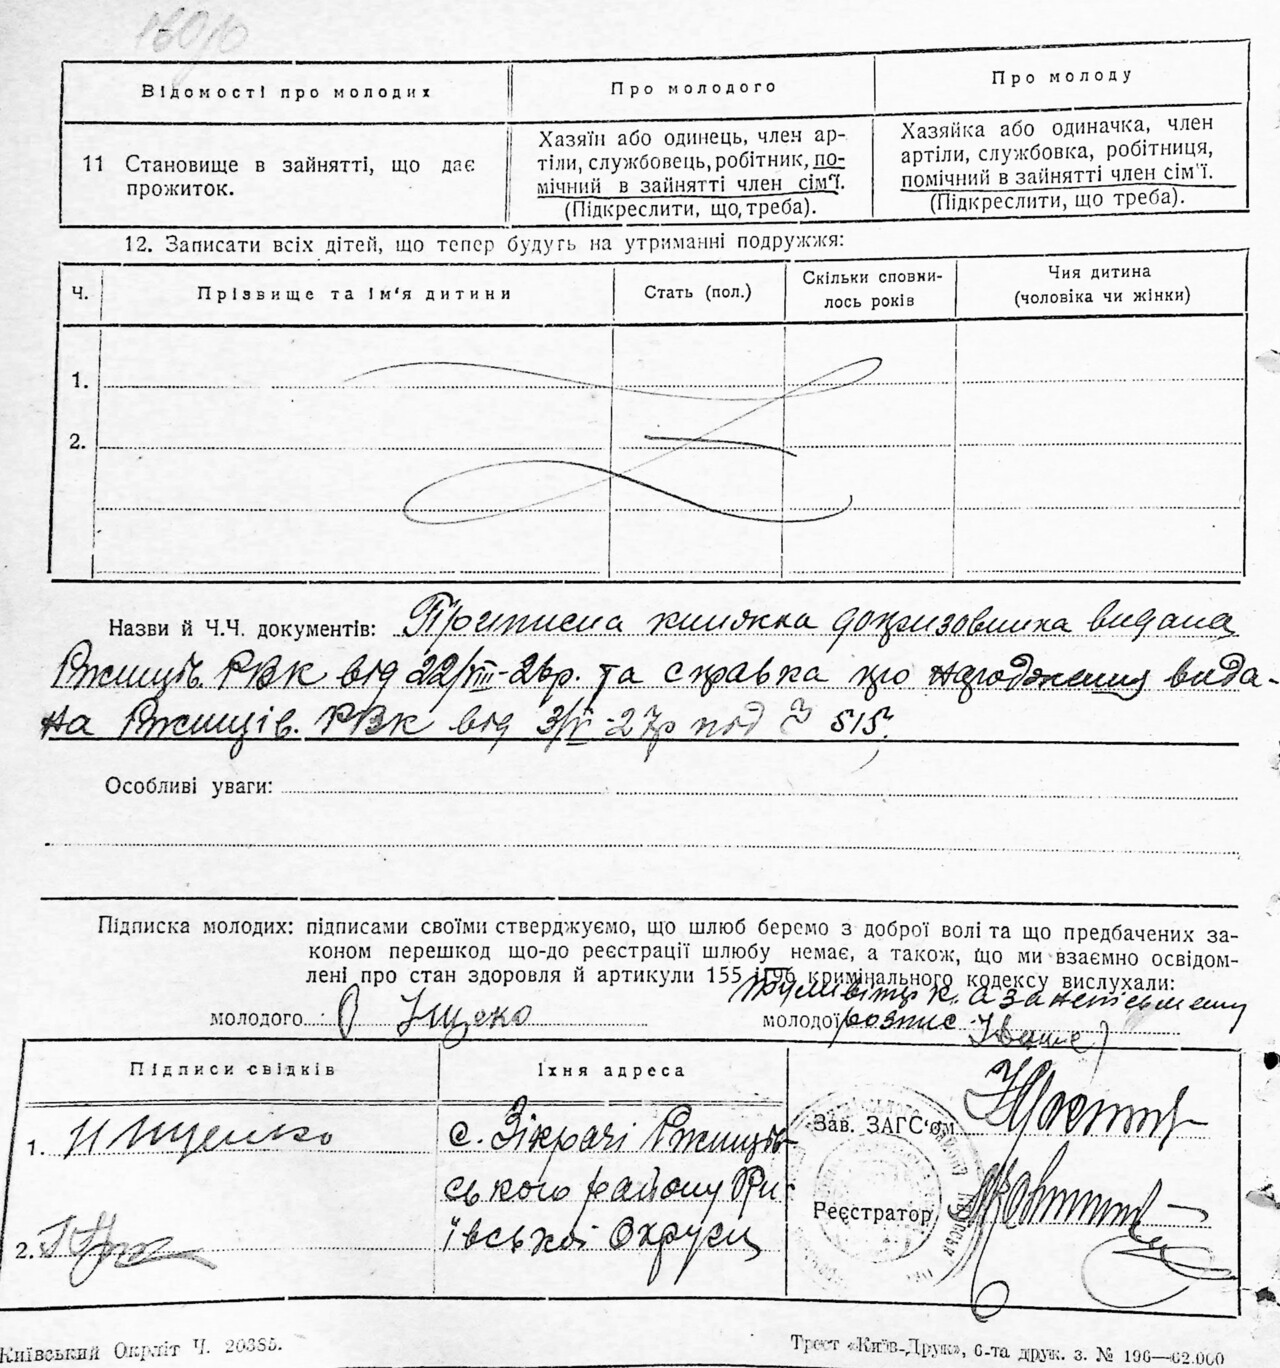 Відомості про молодих
Про молодого
Про молоду
11 Становище в зайнятті, що дає
прожиток.
Хазяїн або одинець, член ар-
тіли, службовець, робітник, по-
мічний в зайнятті член сім'ї.
(Підкреслити, що треба).
Хазяйка або одиначка, член
артіли, службовка, робітниця,
помічний в зайнятті член сім'ї.
(Підкреслити, що треба).
12. Записати всіх дітей, що тепер будуть на утриманні подружжя:
Ч.
Прізвище та ім'я дитини
Стать (пол.)
Скільки сповни-
лось років
Чия дитина
(чоловіка чи жінки)
1.
2.
Назви й Ч.Ч. документів: Приписна книжка допризовника видана
Ржищів. РВК від 22/VIII-26р. та справка про народження вида-
на Ржищів. РВК від 3/V-27р под № 515.
Особливі уваги:
Підписка молодих: підписами своїми стверджуємо, що шлюб беремо з доброї волі та що предбачених за-
коном перешкод що-до реєстрації шлюбу немає, а також, що ми взаємно освідом-
лені про стан здоровля й артикули 155 і 196 кримінального кодексу вислухали:
молодого Іщеко
молодої розпис
Підписи свідків
Їхня адреса
1. Іщенко
2.
с. Зікрачі Ржищів-
ського району Ки-
ївської Округи
Зав. ЗАГС'ом
Реєстратор
Київський Окрліт Ч. 20385.
Трест «Київ-Друк», 6-та друк. з. № 196—62.000